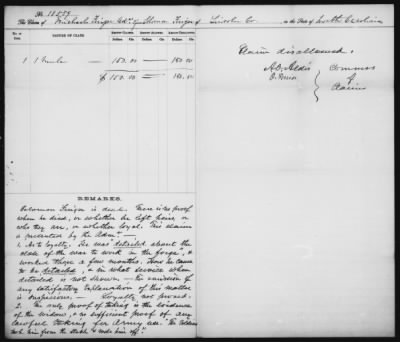 No. 11557
The Claim of Michael Finger Adm. of Solomon Finger of Lincoln Co. in the State of North Carolina
No. of Item. NATURE OF CLAIM. AMOUNT CLAIMED. AMOUNT ALLOWED. AMOUNT DISALLOWED.
Dollars Cts. Dollars Cts. Dollars Cts.
1 1 mule — 150.00 — 150.00
$ 150.00 — 150.00
REMARKS.
Solomon Finger is dead. There is no proof
when he died, or whether he left heirs, or
who they are, or whether loyal. This claim
is presented by the Adm. —
1. As to loyalty. He was detached about the
close of the war to work in the forge, &
worked there a few months. How he came
to be detached, & in what service when
detached is not shown. — The omission of
any satisfactory explanation of this matter
is suspicious. — Loyalty not proved.
2. The only proof of taking is the evidence
of the widow, & no sufficient proof of any
lawful taking for army use. The soldiers
took him from the stable & rode him off."
Claim disallowed.
A.O. Aldis
O. Ferriss
Commrs
of
Claims